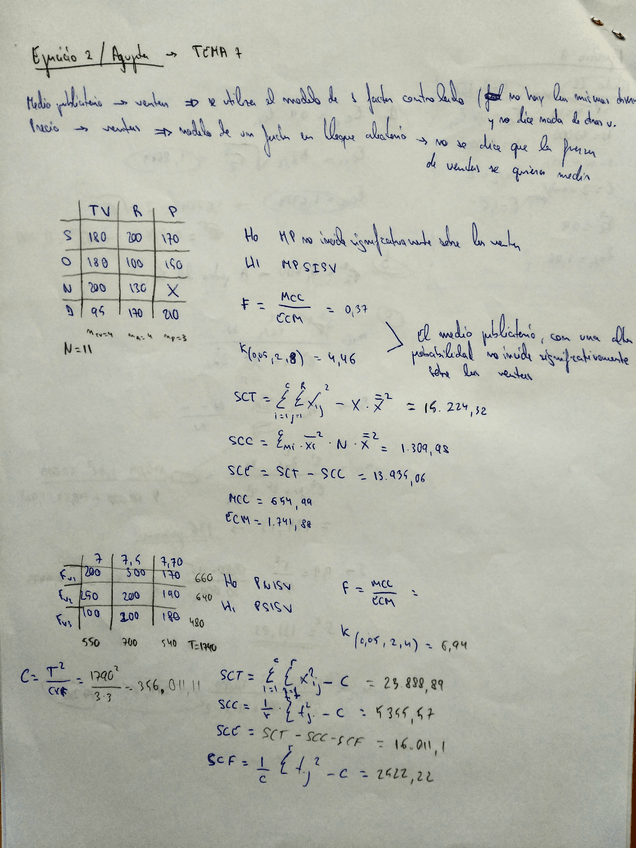 Ejercicio 2 / Aguada → TEMA 7
Medio publicitario → ventas ⇒ se utiliza el modelo de 1 factor controlado ( no hay las mismas
y no dice nada de otras v.
Precio → ventas ⇒ modelo de un factor en bloque aleatorio → no se dice que la fuerza
de ventas se quiera medir
TV R P
S 180 200 170
O 180 100 150
N 200 130 X
D 95 170 210
nTV=4 nR=4 nP=3
N=11
H0 MP no incide significativamente sobre las ventas
H1 MPSISV
F = MCC / ECM = 0,37
K(0,05, 2, 8) = 4,46
El medio publicitario, con una alta
probabilidad no incide significativamente
sobre las ventas
SCT = Σ Σ Xij² − X · X̿² = 15.224,32
SCC = Σ mi · X̄i² · N · X̿² = 1.309,98
SCE = SCT − SCC = 13.935,06
MCC = 654,99
ECM = 1.741,88
7 7,5 7,70
Fv1 200 300 170 660
Fv2 250 200 190 640
Fv3 100 200 180 480
550 700 540 T=1790
H0 PNISV
H1 PSISV
F = MCC / ECM =
K(0,05, 2, 4) = 6,94
C = T² / cxf = 1790² / 3·3 = 356,011,11
SCT = Σ Σ X²ij − C = 23.888,89
SCC = 1/r · Σ t²j − C = 5355,57
SCE = SCT − SCC − SCF = 16.011,1
SCF = 1/c Σ f.j² − C = 2522,22